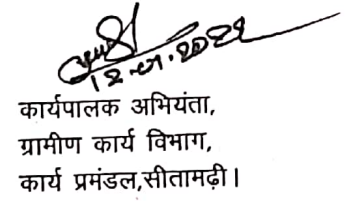 कार्यपालक अभियंता,
ग्रामीण कार्य विभाग,
कार्य प्रमंडल,सीतामढ़ी।